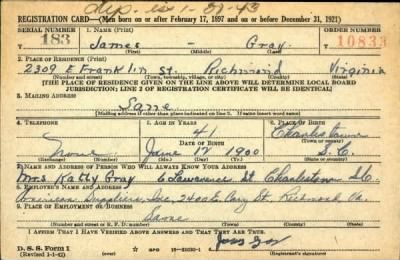 REGISTRATION CARD—(Men born on or after February 17, 1897 and on or before December 31, 1921)
SERIAL NUMBER 1. NAME (Print) ORDER NUMBER
183 James - Gray 10833
(First) (Middle) (Last)
2. PLACE OF RESIDENCE (Print)
2309 E Franklin St. Richmond Virginia
(Number and street) (Town, township, village, or city) (County) (State)
[THE PLACE OF RESIDENCE GIVEN ON THE LINE ABOVE WILL DETERMINE LOCAL BOARD
JURISDICTION; LINE 2 OF REGISTRATION CERTIFICATE WILL BE IDENTICAL]
3. MAILING ADDRESS
Same
[Mailing address if other than place indicated on line 2. If same insert word same]
4. TELEPHONE 5. AGE IN YEARS 6. PLACE OF BIRTH
41 Charlestown
DATE OF BIRTH (Town or county)
None June 17 1900 S.C.
(Exchange) (Number) (Mo.) (Day) (Yr.) (State or country)
7. NAME AND ADDRESS OF PERSON WHO WILL ALWAYS KNOW YOUR ADDRESS
Mrs Katty Gray 6 Lawrence St Charlestown S.C.
8. EMPLOYER'S NAME AND ADDRESS
American Suppliers Inc. 2400 E. Cary St. Richmond, Va.
9. PLACE OF EMPLOYMENT OR BUSINESS
Same
(Number and street or R. F. D. number) (Town) (County) (State)
I AFFIRM THAT I HAVE VERIFIED ABOVE ANSWERS AND THAT THEY ARE TRUE.
D. S. S. Form 1
(Revised 1-1-42) (over) (Registrant's signature)